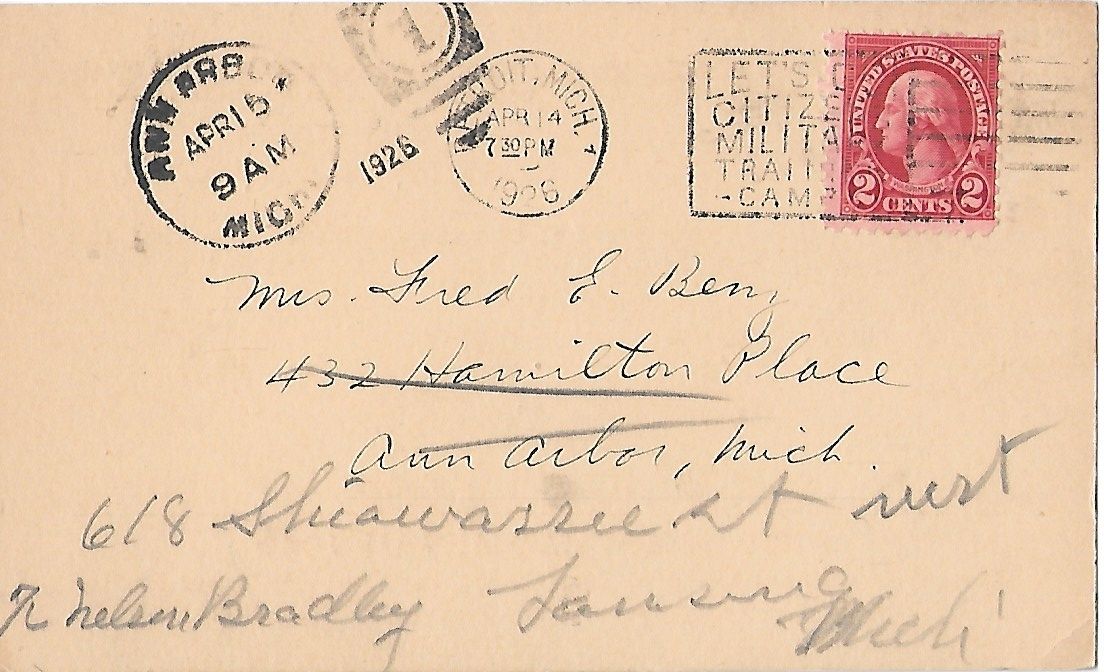 ANN ARBOR
APR 15
9 AM
MICH.
1926
1
DETROIT, MICH. 1
APR 14
7 30 PM
1926
LET'S
CITIZE
MILITA
TRAI
-CAMP
UNITED STATES POSTAGE
WASHINGTON
2 CENTS 2
Mrs. Fred E. Benz
432 Hamilton Place
Ann Arbor, Mich.
618 Shiawassee st west
Nelson Bradley Lansing
Mich